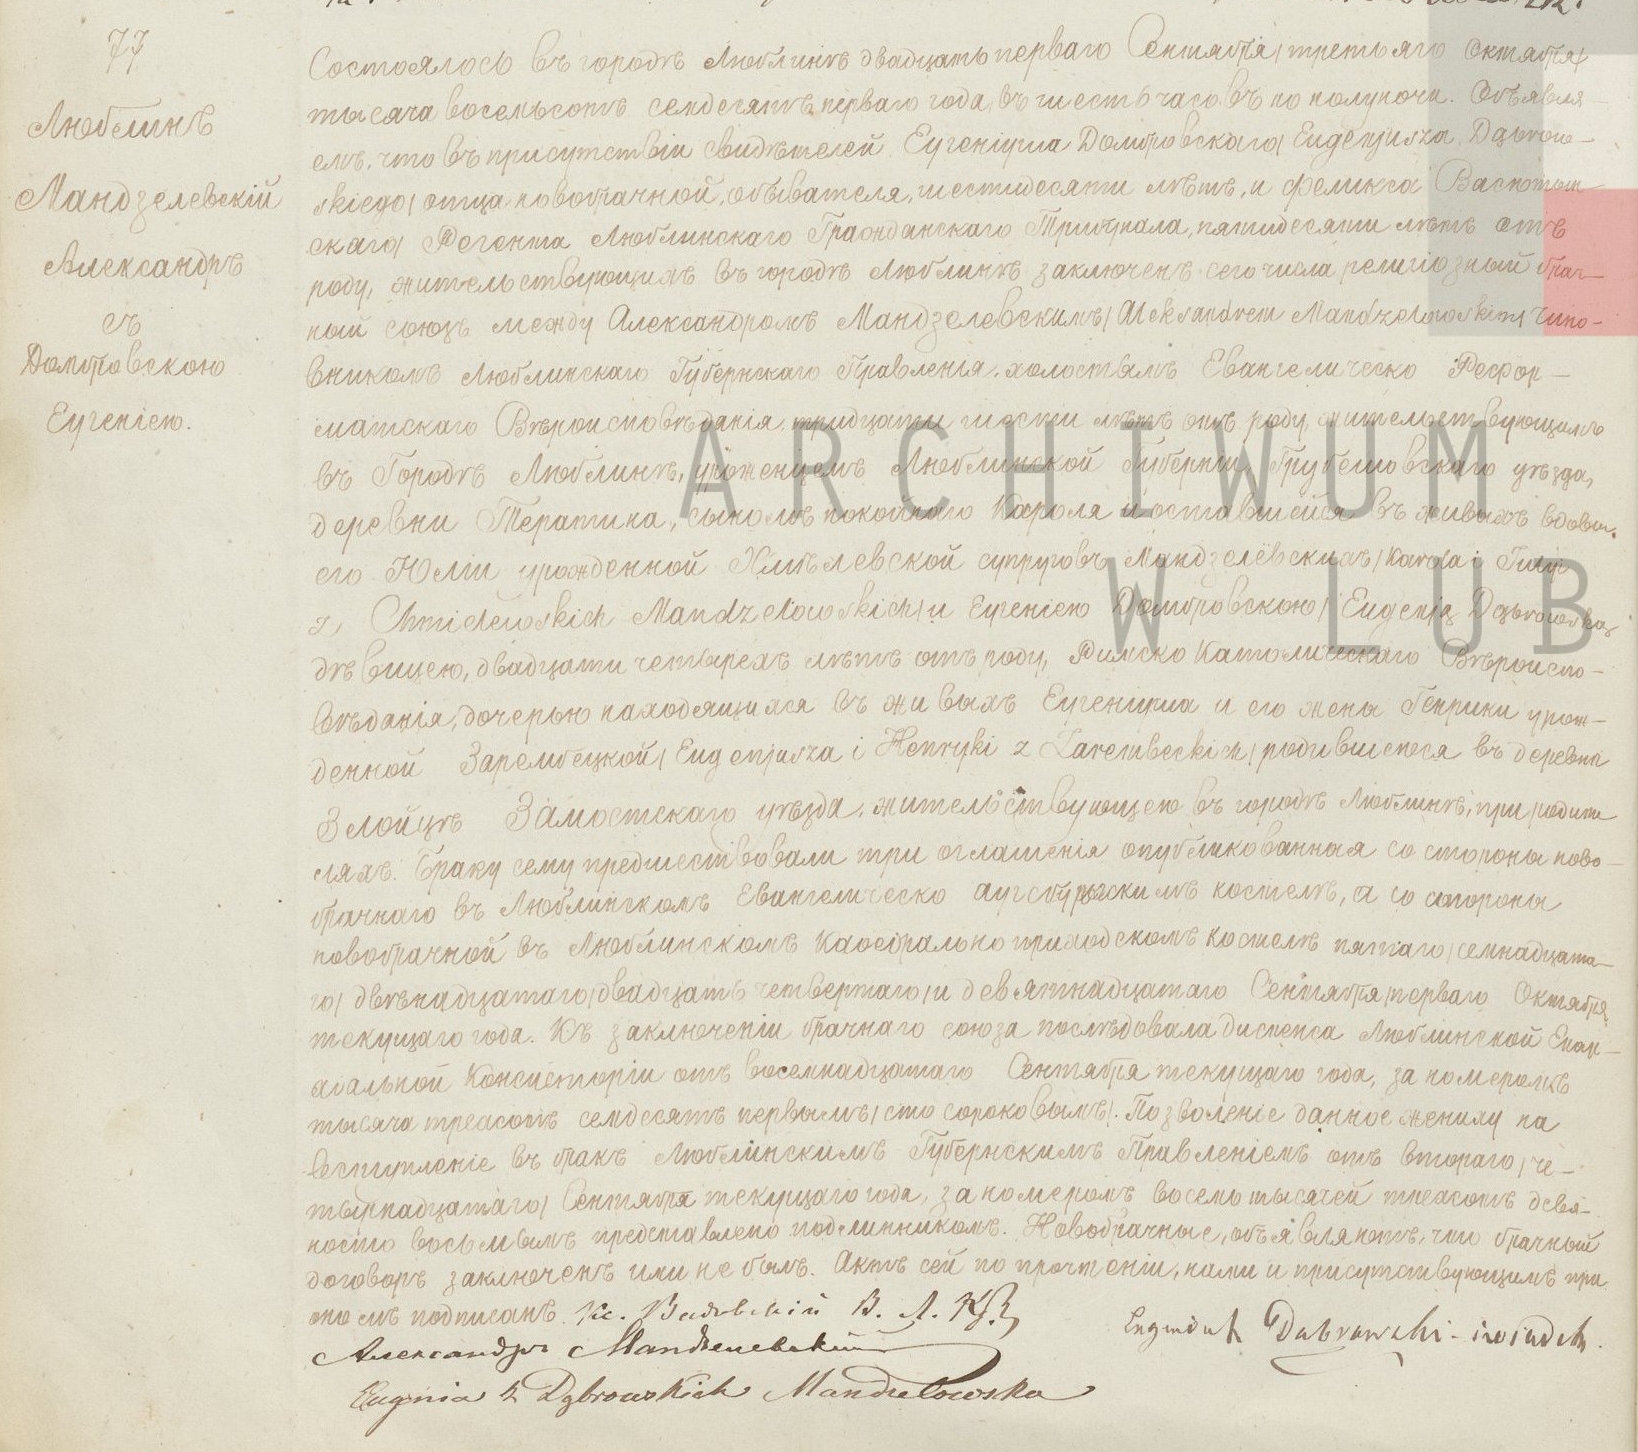 77
Люблинъ
Мандзелевскій
Александръ
съ
Домбровскою
Еугеніею.
Состоялось въ городѣ Люблинѣ двадцать перваго Сентября /третьяго Октября/
тысяча восемьсотъ семдесятъ перваго года, въ шесть часовъ по полуночи. Объявля-
емъ, что въ присутствіи свидѣтелей Еугеніуша Домбровскаго /Eugenjusza Dąbrow-
skiego/ отца новобрачной, обывателя, шестидесяти лѣтъ, и Феликса
скаго Регента Люблинскаго Гражданскаго Трибунала, пятидесяти лѣтъ отъ
роду, жительствующихъ въ городѣ Люблинѣ заключенъ сего числа религіозный брач-
ный союзъ между Александромъ Мандзелевскимъ /Aleksandrem Mandzelowskim/ Чино-
вникомъ Люблинскаго Губернскаго Правленія, холостымъ Евангелическо Рефор-
матскаго Вѣроисповѣданія, тридцати шести лѣтъ отъ роду, жительствующимъ
въ Городѣ Люблинѣ, уроженцемъ Люблинской Губерніи, Грубешовскаго уѣзда,
деревни Тератина, сыномъ покойнаго Кароля и оставшейся въ живыхъ вдовы
его Юліи урожденной Хмѣлевской супруговъ Мандзелёвскихъ /Karola i Julji
z Chmielewskich Mandzelowskich/ и Еугеніею Домбровскою /Eugenją Dąbrowską/
дѣвицею, двадцати четырехъ лѣтъ отъ роду, Римско Католическаго Вѣроиспо-
вѣданія, дочерью находящихся въ живыхъ Еугеніуша и его жены Генрики урож-
денной Зарембецкой /Eugenjusza i Henryki z Zarembeckich/ родившеюся въ деревни
Злойцѣ Замостскаго уѣзда, жительствующею въ городѣ Люблинѣ, при родите-
ляхъ. Браку сему предшествовали три оглашенія опубликованныя со стороны ново-
брачнаго въ Люблинскомъ Евангелическо аугсбургскимъ костелѣ, а со стороны
новобрачной въ Люблинскомъ Каѳедрально приходскомъ костелѣ пятаго /семнадцата-
го/ двѣнадцатаго /двадцать четвертаго/ и девятнадцатаго Сентября /перваго Октября/
текущаго года. Къ заключеніи брачнаго союза послѣдовала диспенса Люблинской Епар-
хіальной Консисторіи отъ восемнадцатаго Сентября текущаго года, за номеромъ
тысяча триста семдесятъ первымъ /сто сороковымъ/. Позволеніе данное жениху на
вступленіе въ бракъ Люблинскимъ Губернскимъ Правленіемъ отъ втораго /че-
тырнадцатаго/ Сентября текущаго года, за номеромъ восемь тысячей триста девя-
носто восьмымъ представлено подлинникомъ. Новобрачные, объявляютъ, что брачный
договоръ заключенъ ими не былъ. Актъ сей по прочтеніи, нами и присутствующимъ при
ономъ подписанъ. Кс.
Eugeniusz Dąbrowski
Александръ Мандзелевскій
Eugenia z Dąbrowskich Mandzelowska
ARCHIWUM
W LUB